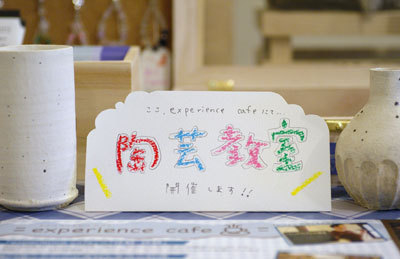 ここ、experience cafeにて…
陶芸教室
開催します!!
experience cafe